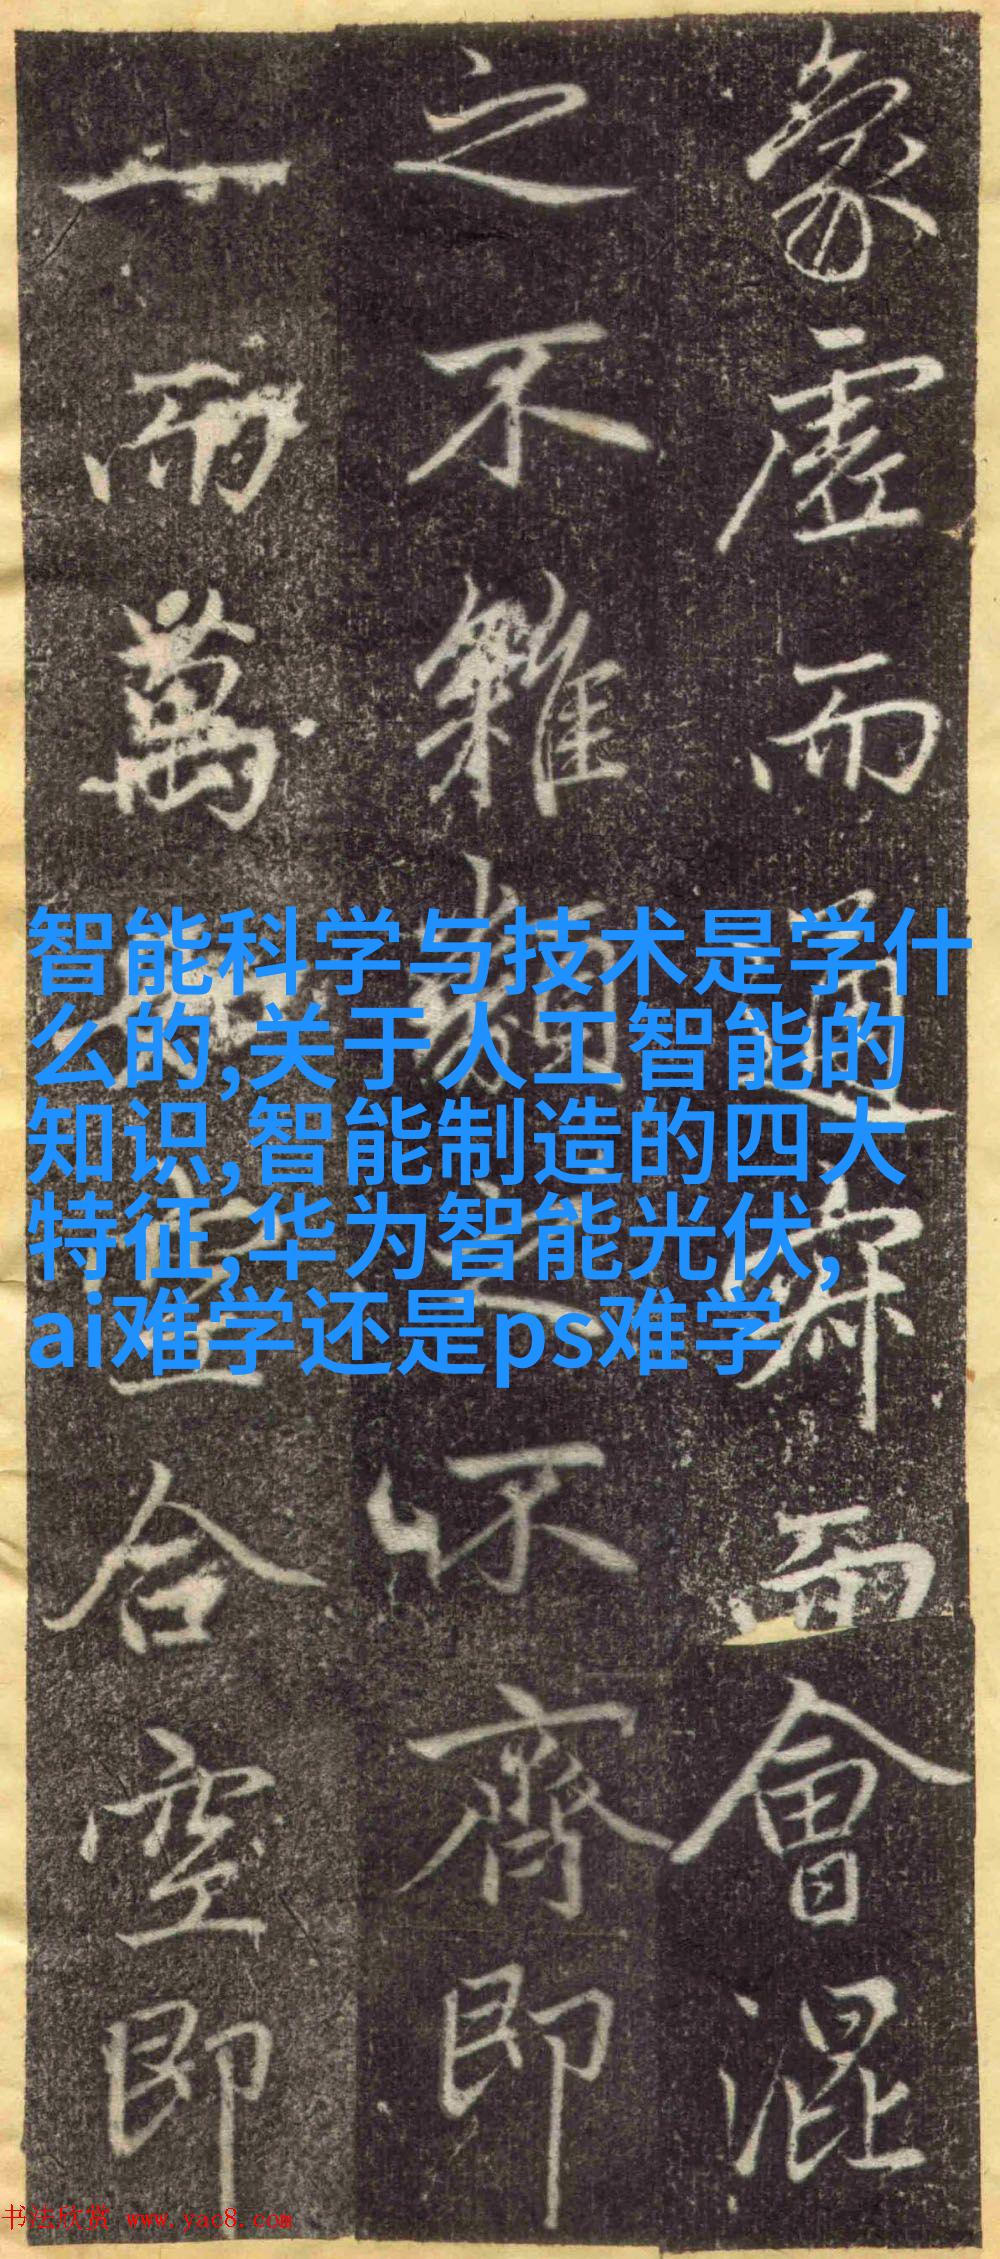 象虛而通寂而會混
之不雜類之不齊即
一而萬合空即
智能科学与技术是学什
么的,关于人工智能的
知识,智能制造的四大
特征,华为智能光伏,
ai难学还是ps难学
书法欣赏 www.yac8.com